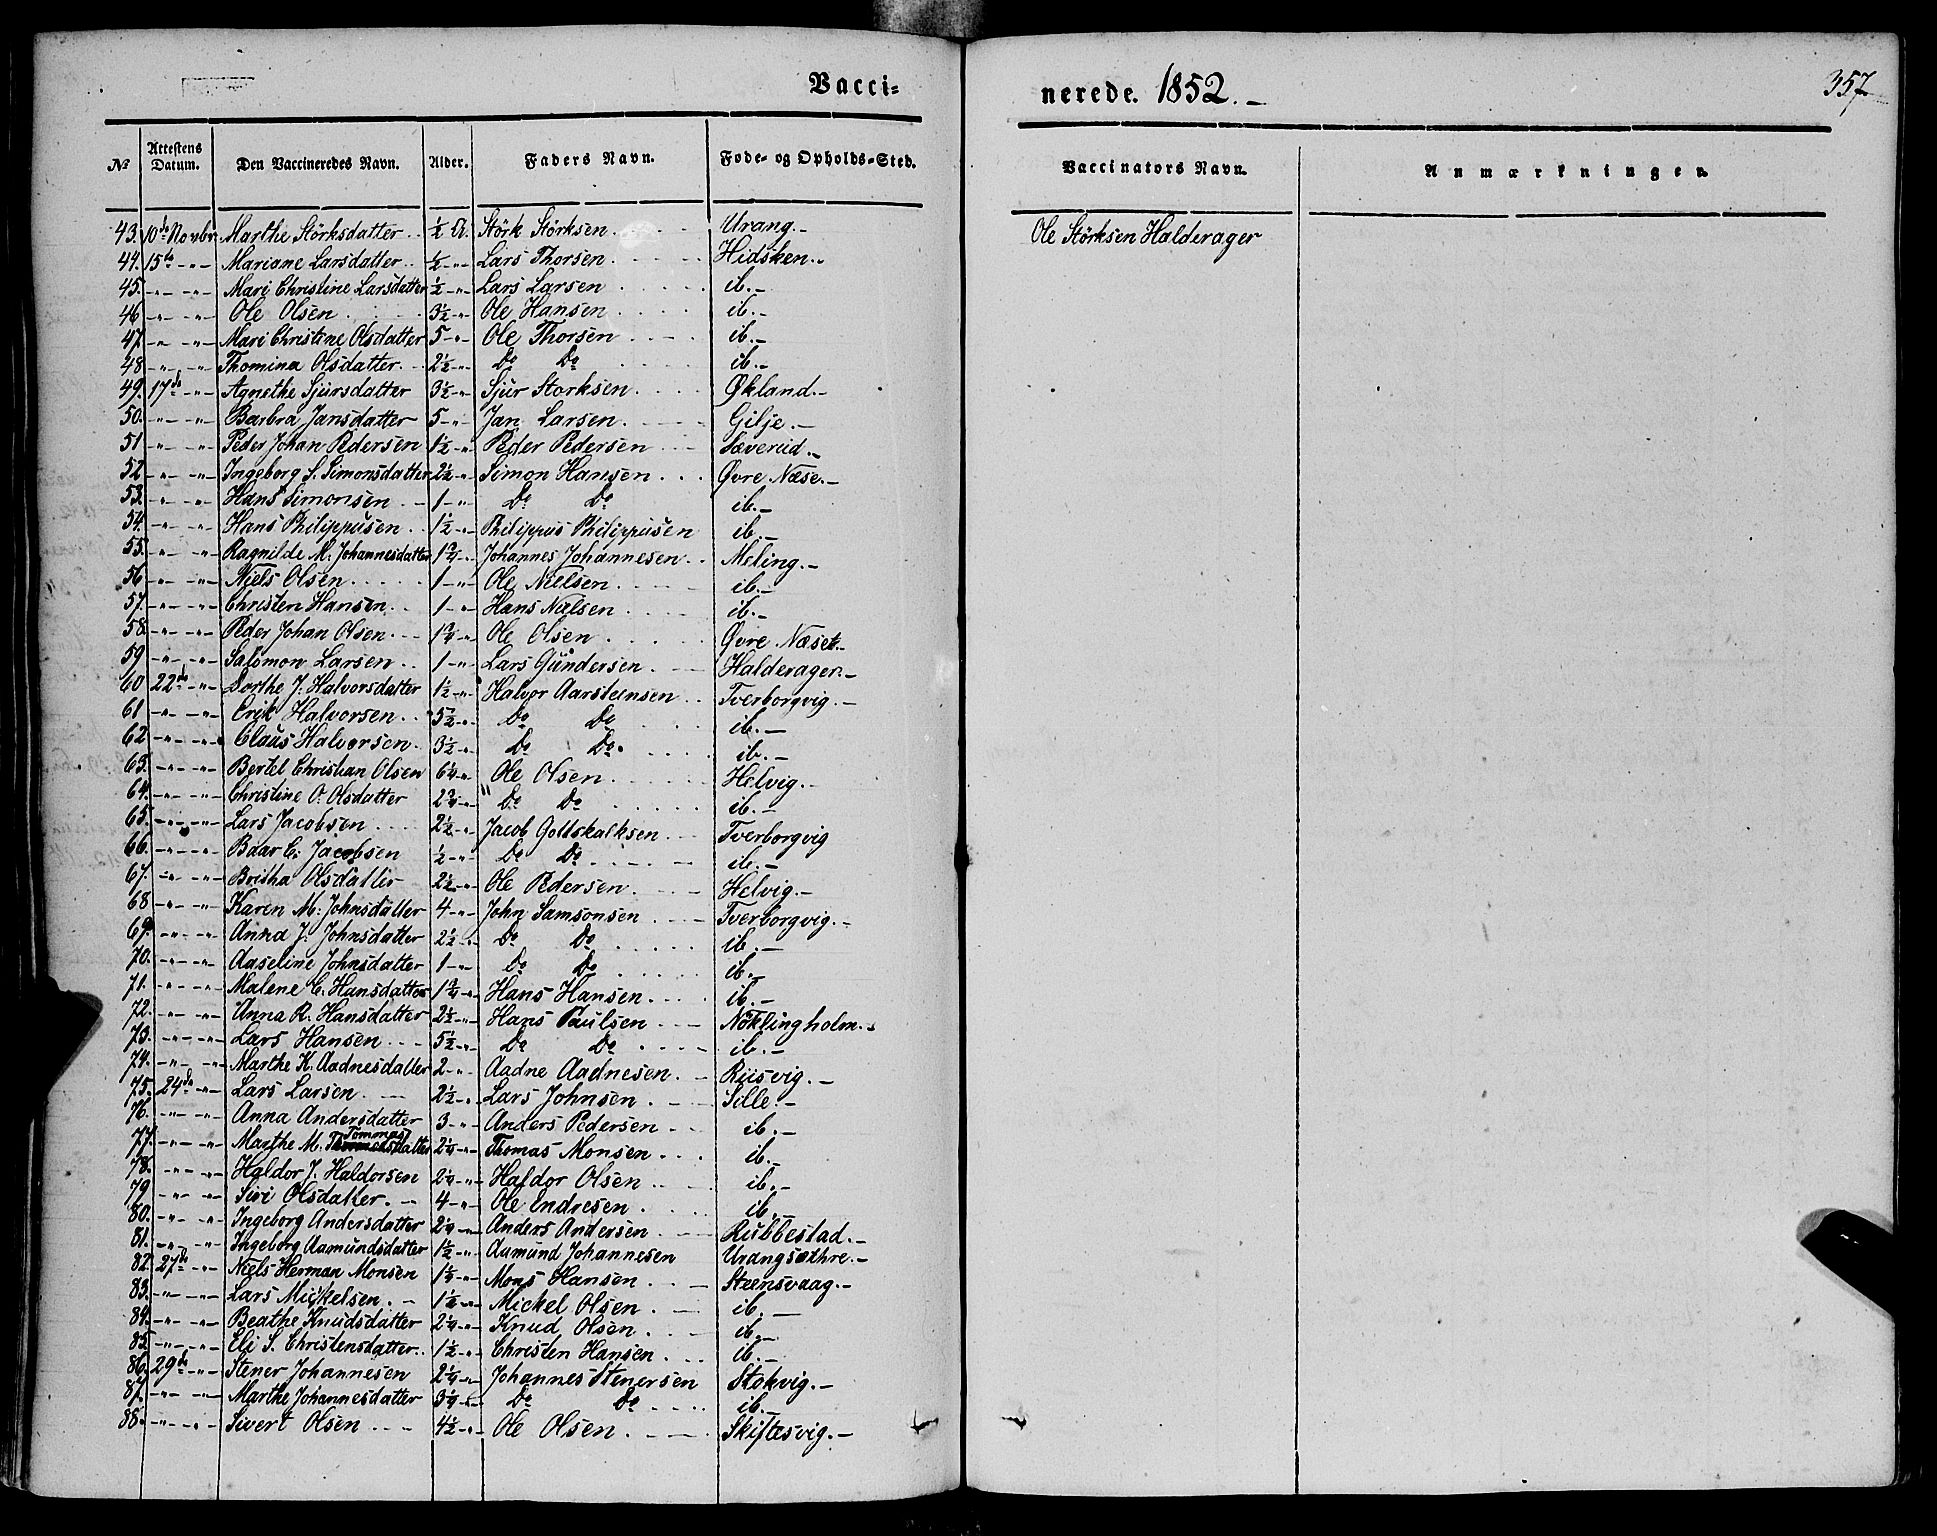 Vacci-
nerede. 1852.-
357
№ Attestens Datum. Den Vaccineredes Navn. Alder. Faders Navn. Føde- og Opholds-Sted. Vaccinators Navn. Anmærkninger.
43. 10de Novbr Marthe Störksdatter ½ A. Störk Störksen Urang.- Ole Störksen Halderager
44. 15de -"- Mariane Larsdatter ½ -"- Lars Thorsen Hidsken.-
45. -"- -"- Mari Christine Larsdatter ½ -"- Lars Larsen ib.-
46 -"- -"- Ole Olsen 3½ -"- Ole Hansen ib.-
47. -"- -"- Mari Christine Olsdatter 5 -"- Ole Thorsen ib.-
48 -"- -"- Thomina Olsdatter 2½ -"- Do Do ib.-
49. 17de -"- Agnethe Sjursdatter 3½ -"- Sjur Storksen Økland.-
50. -"- -"- Barbra Jansdatter 5 -"- Jan Larsen Gilje.-
51 -"- -"- Peder Johan Pedersen 1½ -"- Peder Pedersen Sæverud.-
52 -"- -"- Ingeborg S. Simonsdatter 2½ -"- Simon Hansen Øvre Næse.-
53. -"- -"- Hans Simonsen 1 -"- Do Do ib.-
54. -"- -"- Hans Philippusen 1½ -"- Philippus Philippusen ib.-
55. -"- -"- Ragnilde M. Johannesdatter 1¾ -"- Johannes Johannesen Meling.-
56 -"- -"- Niels Olsen 1 -"- Ole Nielsen ib.-
57. -"- -"- Christen Hansen 1 -"- Hans Nielsen ib.-
58. -"- -"- Peder Johan Olsen 1¾ -"- Ole Olsen Øvre Næset.-
59 -"- -"- Salomon Larsen 1 -"- Lars Gundersen Halderager.-
60 22de -"- Dorthe J. Halvorsdatter 1½ -"- Halvor Aarsteinsen Tverborgvig.-
61 -"- -"- Erik Halvorsen 5½ -"- Do Do ib.-
62 -"- -"- Claus Halvorsen 3½ -"- Do Do ib.-
63. -"- -"- Bertel Christian Olsen 6¼ -"- Ole Olsen Helvig.-
64. -"- -"- Christine O. Olsdatter 2¾ -"- Do Do ib.-
65. -"- -"- Lars Jacobsen 2½ -"- Jacob Gottskalksen Tverborgvig
66. -"- -"- Baar C. Jacobsen ½ -"- Do Do ib.-
67. -"- -"- Britha Olsdatter 2½ -"- Ole Pedersen Helvig.-
68 -"- -"- Karen M. Johnsdatter 4 -"- John Samsonsen Tverborgvig.-
69. -"- -"- Anna J. Johnsdatter 2½ -"- Do Do ib.-
70. -"- -"- Aaseline Johnsdatter 1 -"- Do Do ib.-
71. -"- -"- Malene C. Hansdatter 1¾ -"- Hans Hansen ib.-
72. -"- -"- Anna R. Hansdatter 2½ -"- Hans Paulsen Nöklingholm.-
73. -"- -"- Lars Hansen 5½ -"- Do Do ib.-
74. -"- -"- Marthe K. Aadnesdatter 2 -"- Aadne Aadnesen Riisvig.-
75. 24de -"- Lars Larsen 2½ -"- Lars Johnsen Sille.-
76. -"- -"- Anna Andersdatter 3 -"- Anders Pedersen ib.-
77. -"- -"- Marthe M. Tommasdatter 2¼ -"- Thomas Monsen ib.-
78. -"- -"- Haldor J. Haldorsen 2¼ -"- Haldor Olsen ib.-
79 -"- -"- Siri Olsdatter 4 -"- Ole Endresen ib.-
80. -"- -"- Ingeborg Andersdatter 2¼ -"- Anders Andersen Rubbestad.-
81. -"- -"- Ingeborg Aamundsdatter 1½ -"- Aamund Johannesen Urangsæthre.-
82. 27de -"- Niels Herman Monsen 1¼ -"- Mons Hansen Steensvaag.-
83. -"- -"- Lars Mickelsen 1½ -"- Mickel Olsen ib.-
84. -"- -"- Beathe Knudsdatter 2¼ -"- Knud Olsen ib.-
85. -"- -"- Eli S. Christensdatter 1½ -"- Christen Hansen ib.-
86. 29de -"- Stener Johannesen 2¼ -"- Johannes Stenersen Stokvig.-
87. -"- -"- Marthe Johannesdatter 3¼ -"- Do Do ib.-
88. -"- -"- Sivert Olsen 4½ -"- Ole Olsen Skiftesvig.-